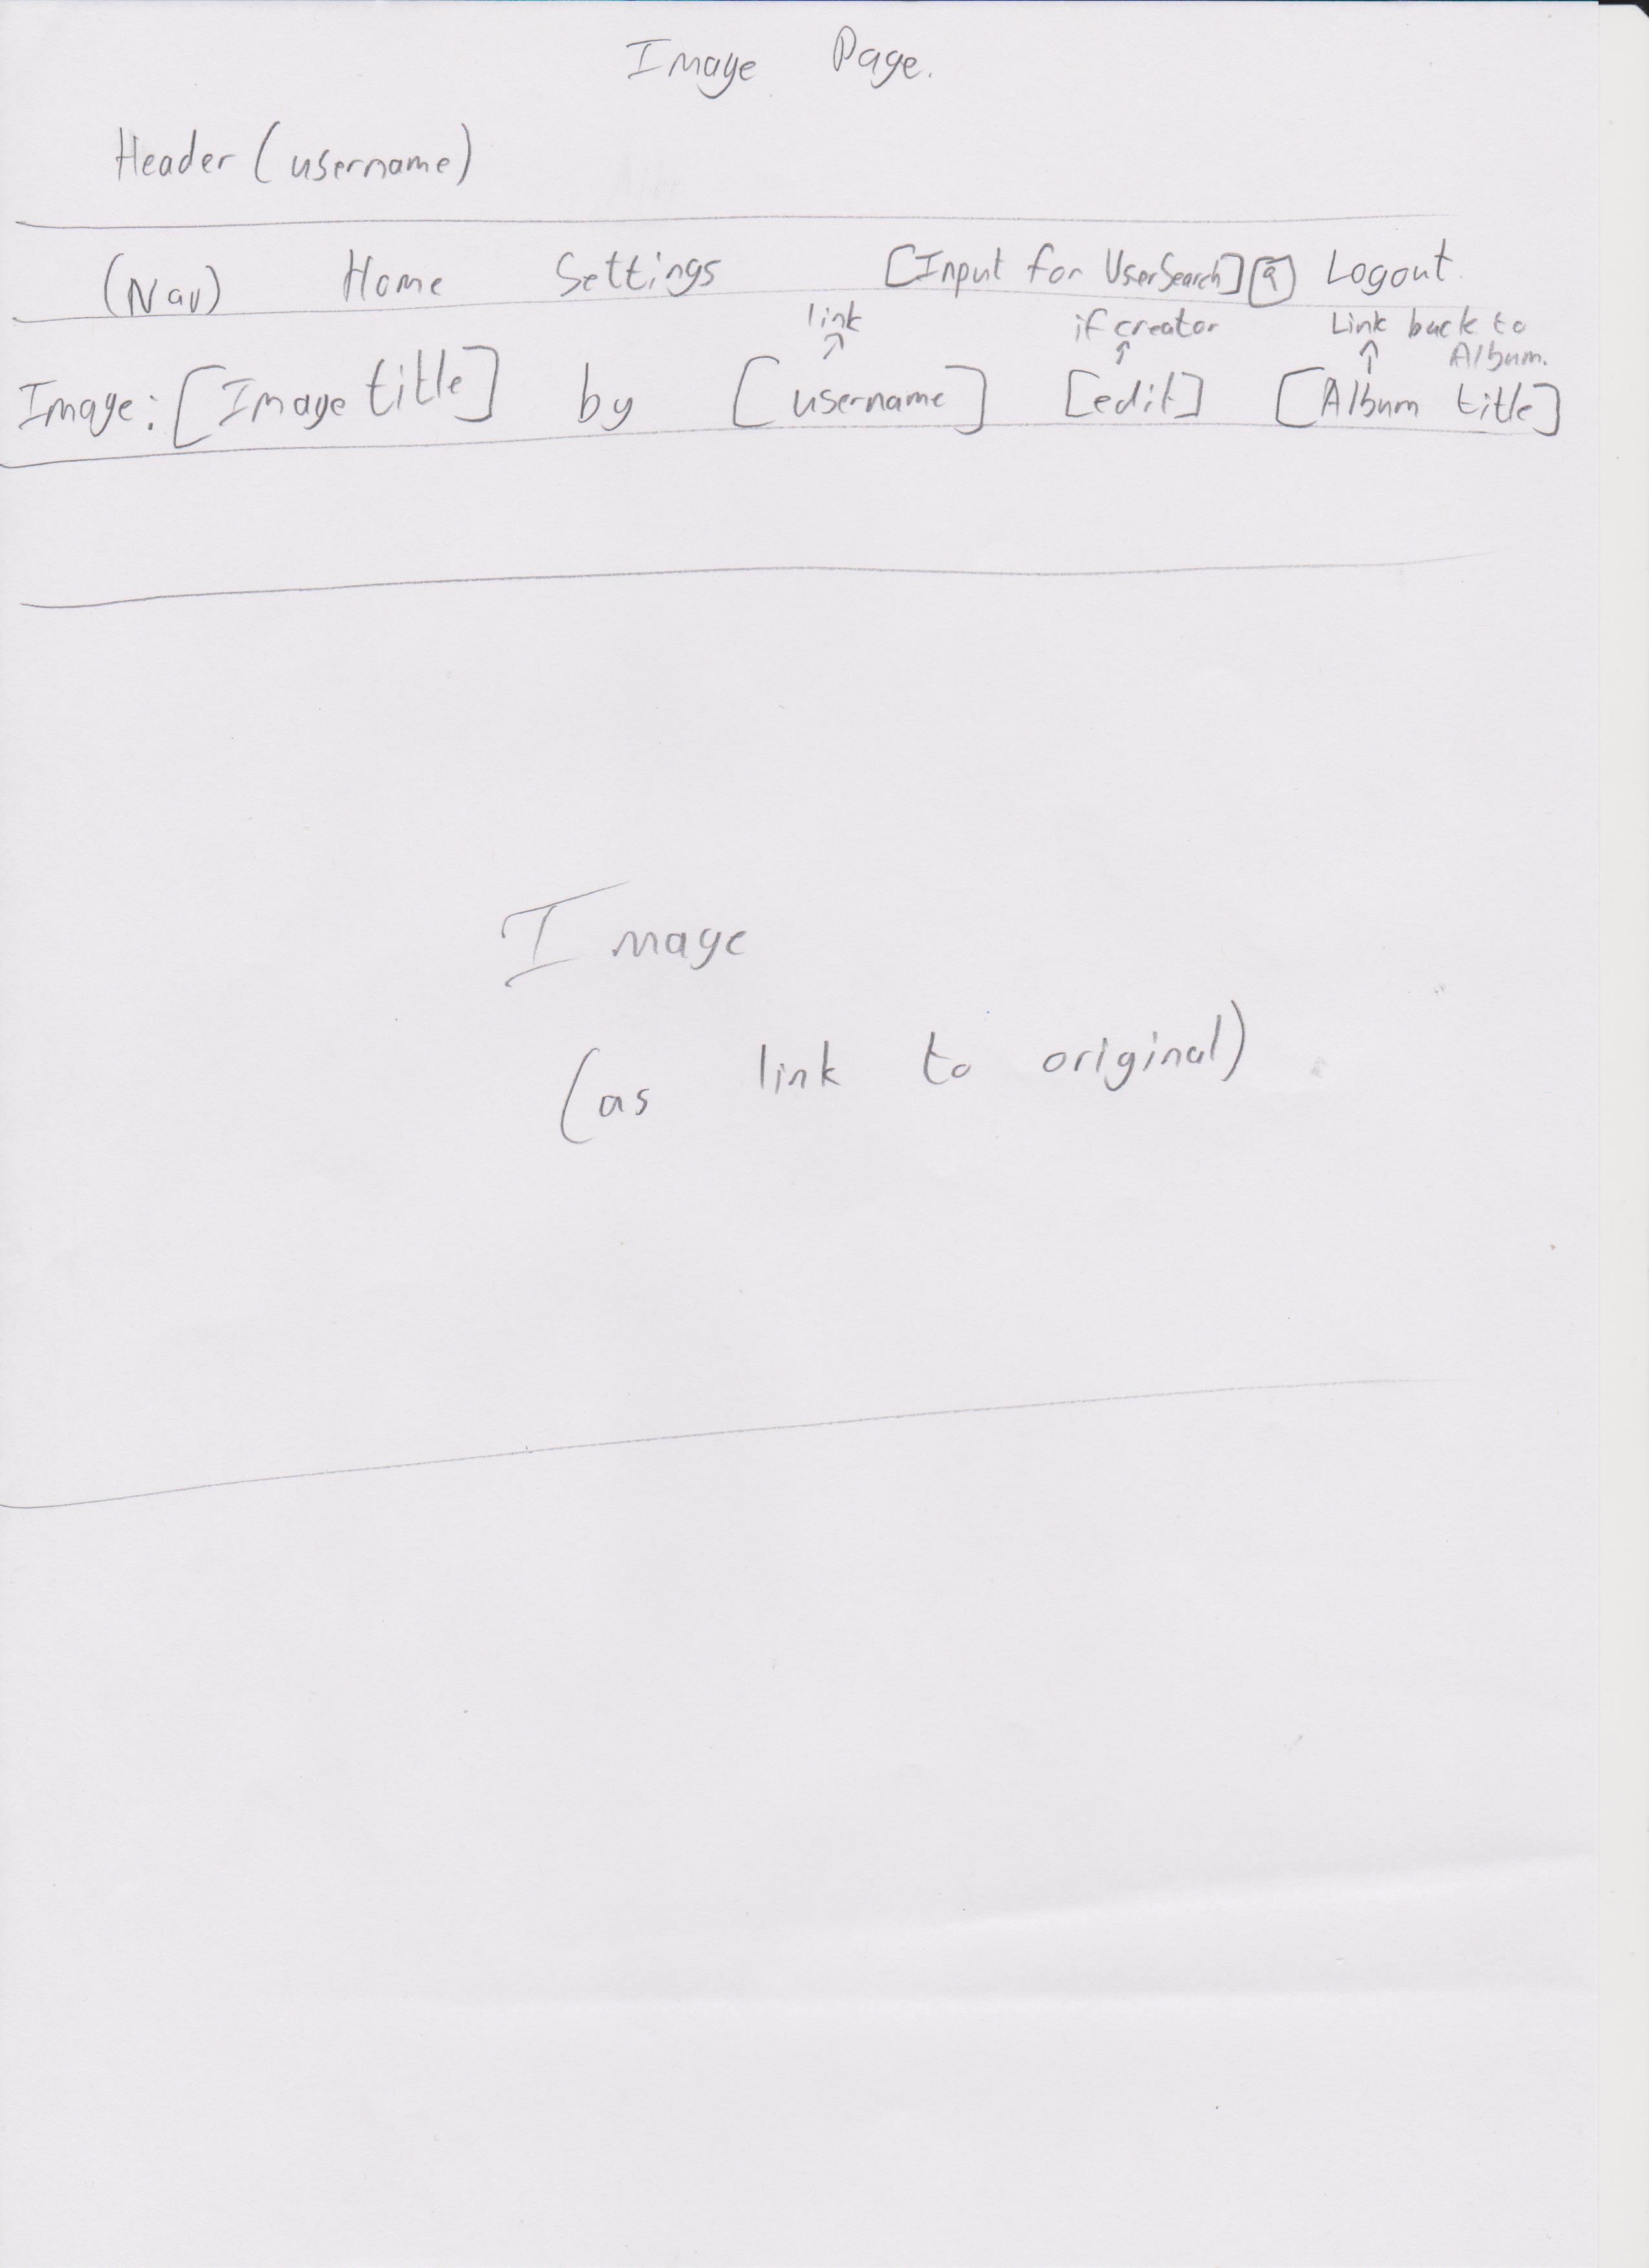 Image Page.
Header (username)
(Nav) Home Settings [Input for UserSearch] Logout
link if creator Link back to
Album.
Image: [Image title] by [username] [edit] [Album title]
Image
(as link to original)